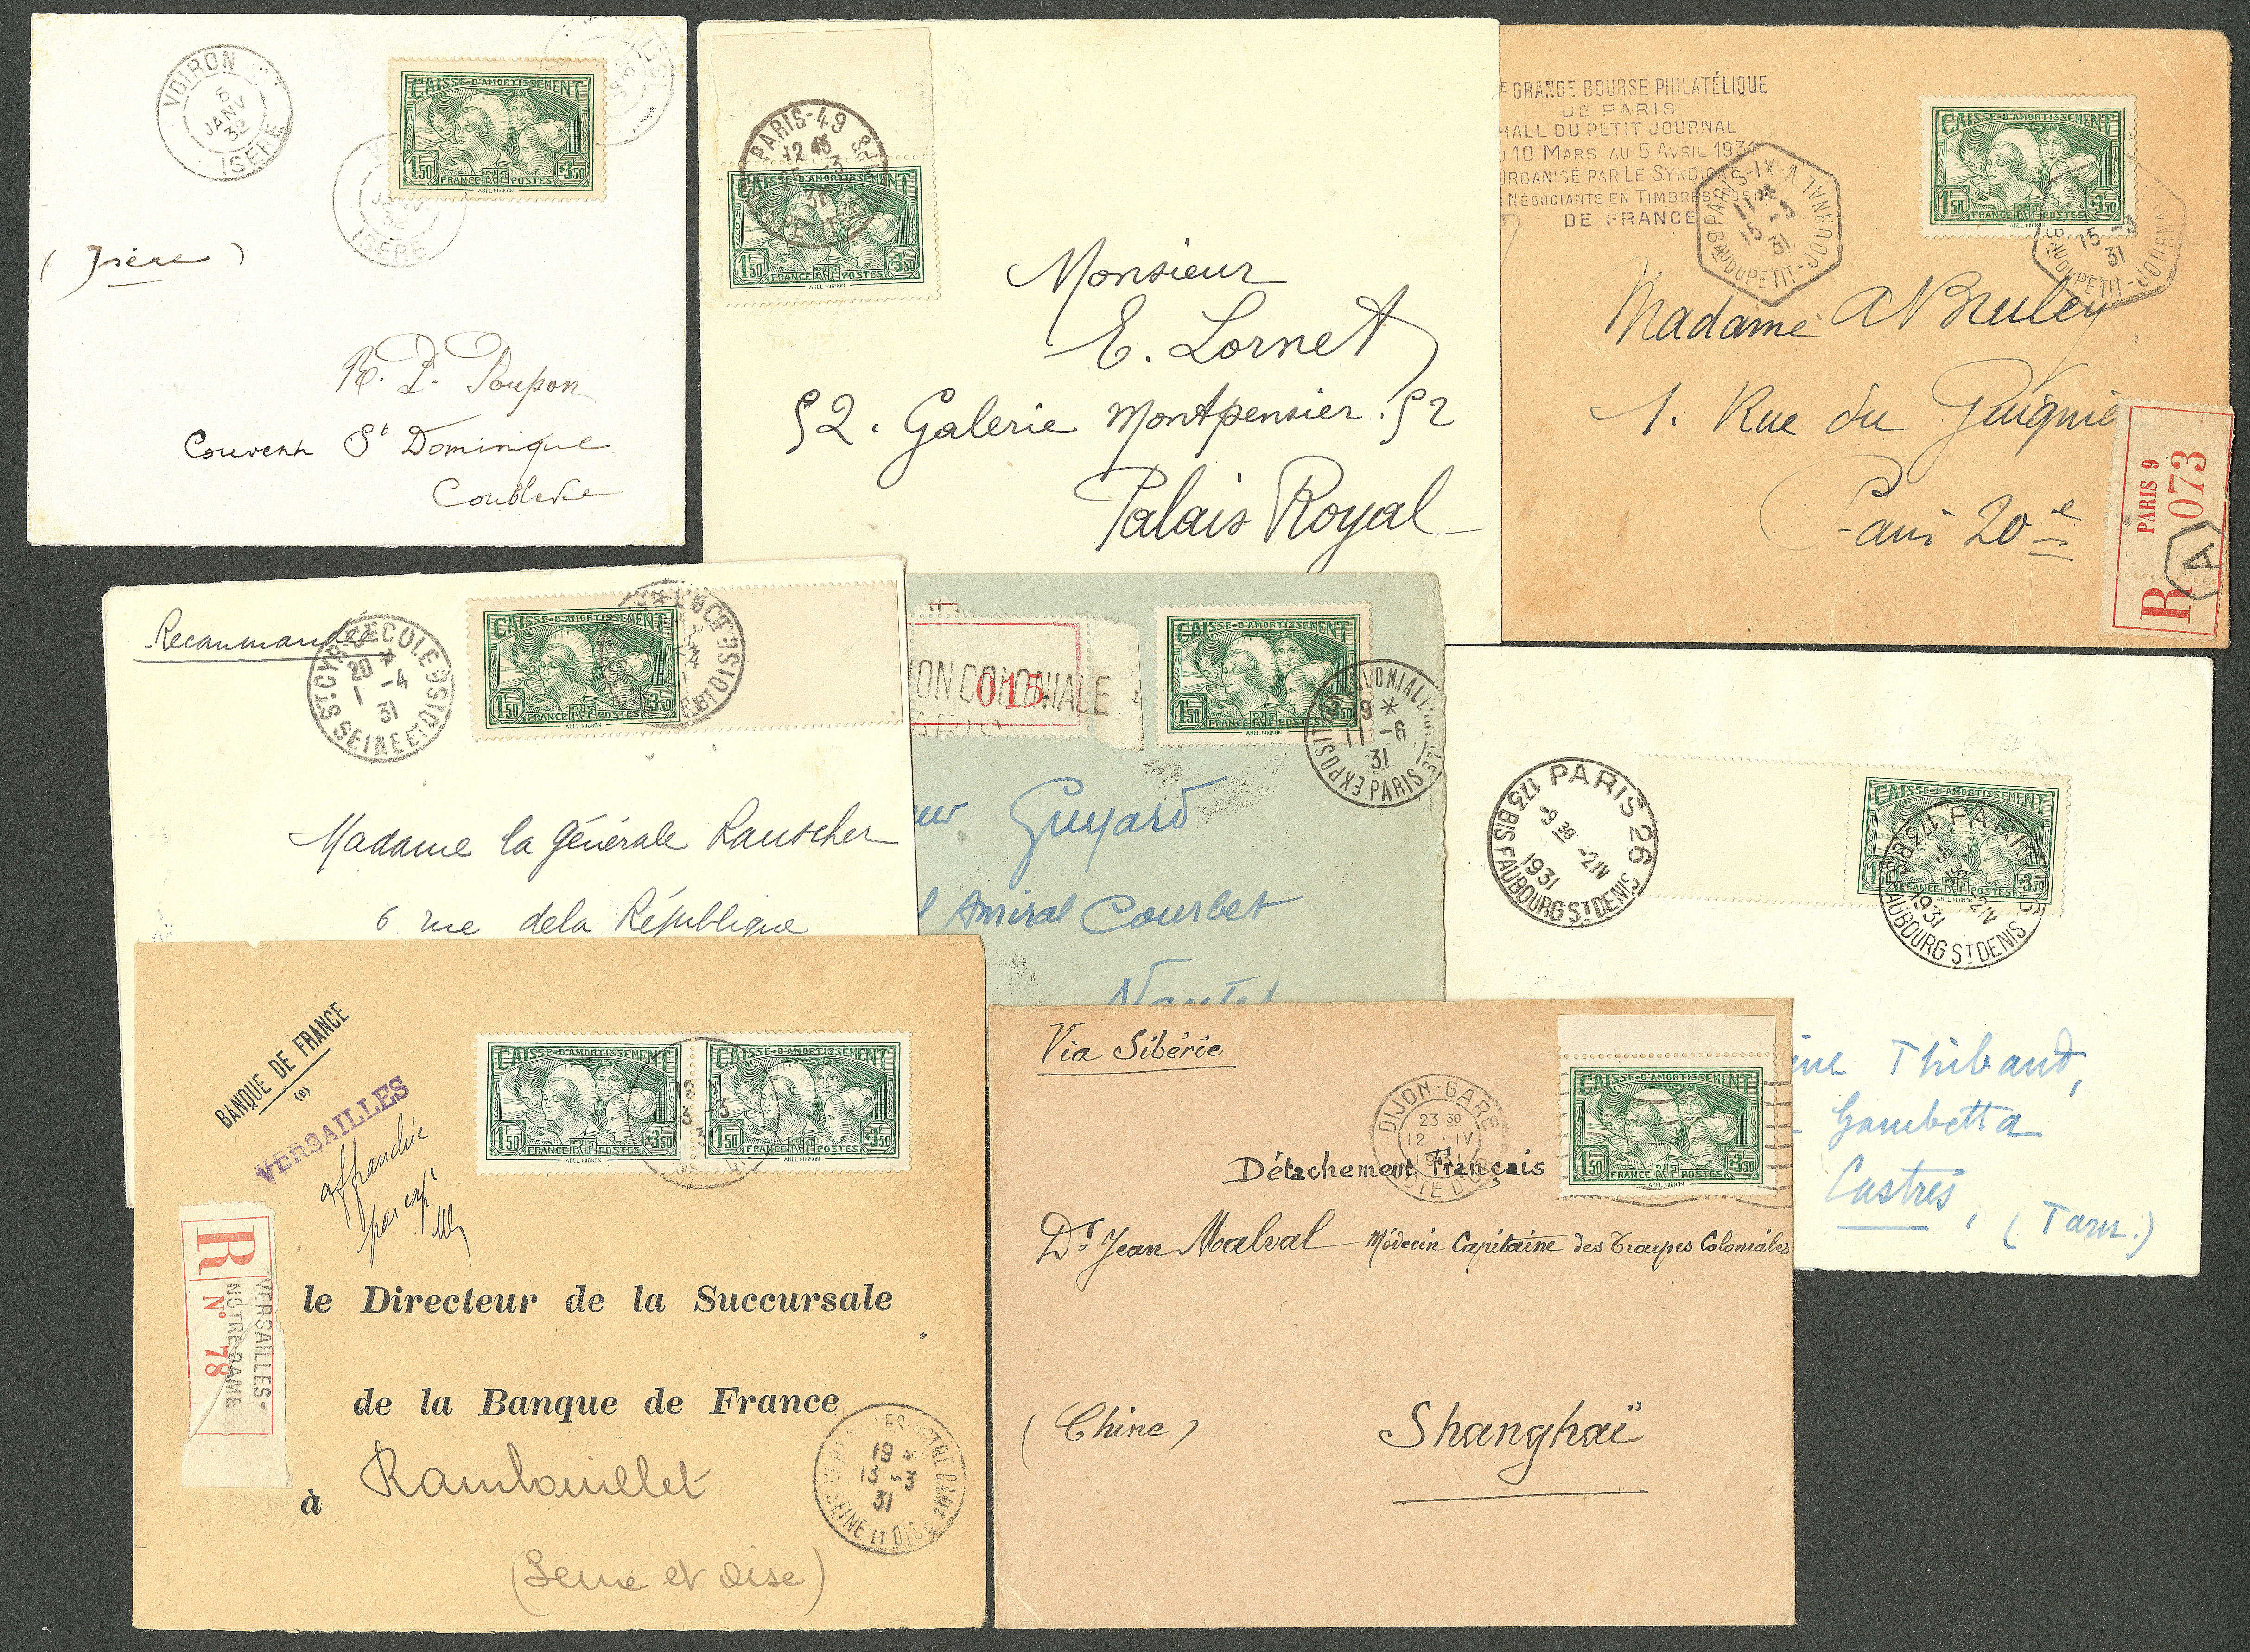 VOIRON
5
JANV
32
ISÈRE
ISÈRE
CAISSE-D'AMORTISSEMENT
1F50 FRANCE RF POSTES +3F50
ABEL MIGNON
(Isère)
R. P. Poupon
Couvent St Dominique
Coublevie
PARIS-49
12 45
31
1F50 FRANCE RF POSTES +3F50
ABEL MIGNON
Monsieur
E. Lornet
52. Galerie Montpensier. 52
Palais Royal
GRANDE BOURSE PHILATÉLIQUE
DE PARIS
HALL DU PETIT JOURNAL
10 MARS AU 5 AVRIL 1931
ORGANISÉ PAR LE SYNDICAT
NÉGOCIANTS EN TIMBRES POSTE
DE FRANCE
PARIS-IX-A
15 31
PETIT-JOURNAL
CAISSE-D'AMORTISSEMENT
1F50 FRANCE RF POSTES +3F50
ABEL MIGNON
15
31
PETIT-JOURNAL
Madame Bruley
1. Rue du Guignie
Paris 20e
R PARIS 9
073
A
Recommandée
ST CYR-L'ECOLE
20 *
1 -4
31
SEINE ET OISE
CAISSE-D'AMORTISSEMENT
1F50 FRANCE RF POSTES +3F50
ABEL MIGNON
Madame la Générale Rauscher
6 rue de la République
ION COLONIALE
015
CAISSE-D'AMORTISSEMENT
1F50 FRANCE RF POSTES +3F50
ABEL MIGNON
EXPOSITION COLONIALE
19 *
11 -6
31
PARIS
Guyard
Amiral Courbet
Nantes
PARIS 26
9 30
-2 IV
1931
173 BIS FAUBOURG ST DENIS
CAISSE-D'AMORTISSEMENT
1F50 FRANCE RF POSTES +3F50
ABEL MIGNON
PARIS 26
9 30
-2 IV
1931
173 BIS FAUBOURG ST DENIS
Thibaud,
Gambetta
Castres, (Tarn.)
BANQUE DE FRANCE
(6)
VERSAILLES
affranchie
par
CAISSE-D'AMORTISSEMENT CAISSE-D'AMORTISSEMENT
1F50 FRANCE RF POSTES +3F50 1F50 FRANCE RF POSTES +3F50
ABEL MIGNON ABEL MIGNON
R
N° 78
VERSAILLES-
NOTRE DAME
le Directeur de la Succursale
de la Banque de France
à Rambouillet
(Seine et Oise)
VERSAILLES NOTRE DAME
19 *
13 -3
31
SEINE ET OISE
Via Sibérie
DIJON-GARE
23 30
12 IV
1931
COTE D'OR
CAISSE-D'AMORTISSEMENT
1F50 FRANCE RF POSTES +3F50
ABEL MIGNON
Détachement Français
Dr Jean Malval Médecin Capitaine des Troupes Coloniales
(Chine) Shanghaï